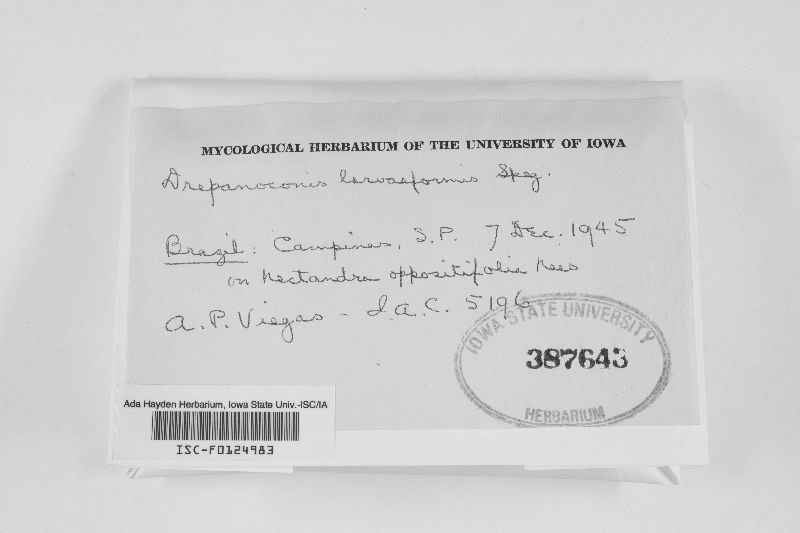 MYCOLOGICAL HERBARIUM OF THE UNIVERSITY OF IOWA
Drepanoconis larvaeformis Speg.
Brazil: Campinas, S.P. 7 Dec. 1945
on Nectandra oppositifolia Nees
A.P. Viegas - I.A.C. 5196
IOWA STATE UNIVERSITY
387643
HERBARIUM
Ada Hayden Herbarium, Iowa State Univ.-ISC/IA
ISC-F0124983